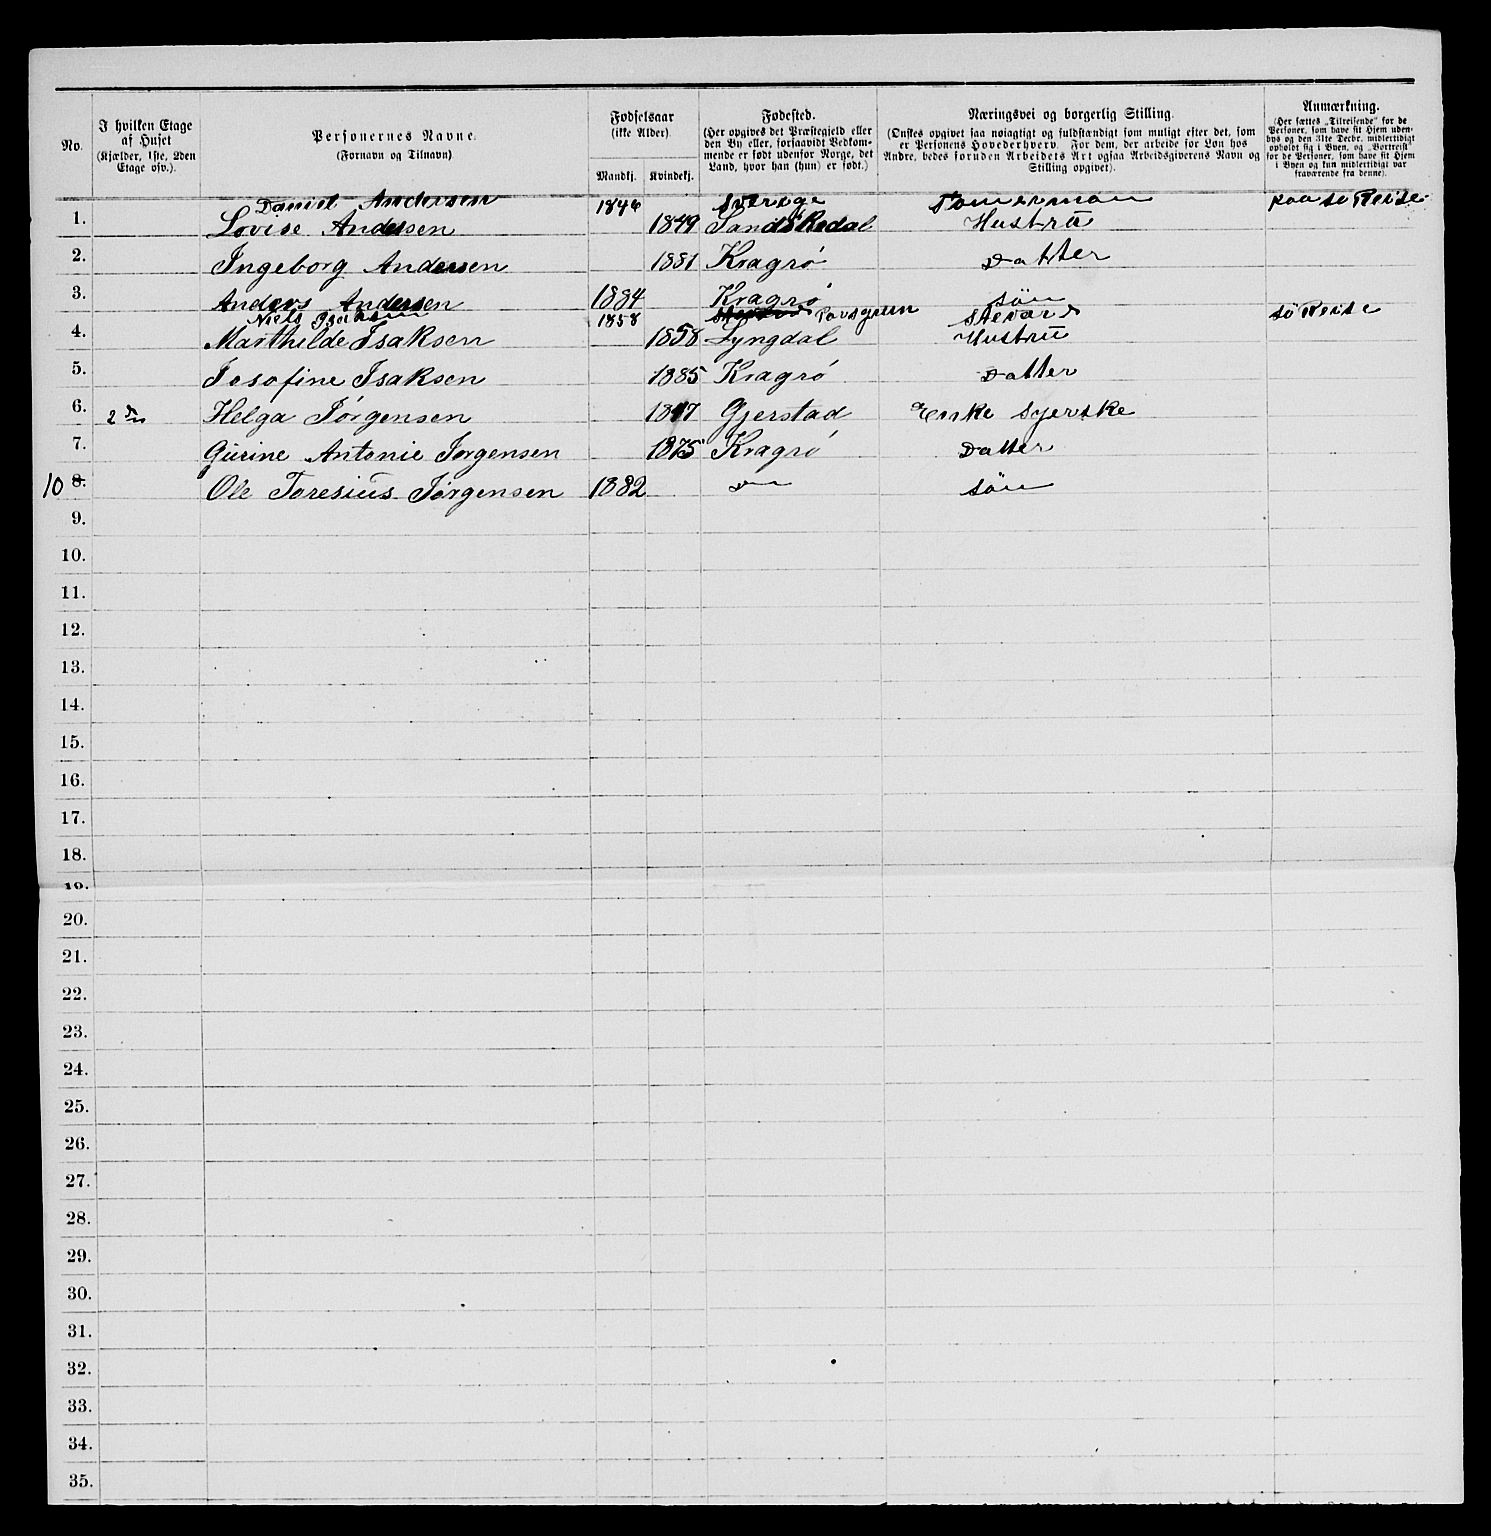 No.
I hvilken Etage af Huset (Kjælder, 1ste, 2den Etage osv.).
Personernes Navne. (Fornavn og Tilnavn)
Fødselsaar (ikke Alder).
Mandkj. Kvindekj.
Fødested. (Her opgives det Præstegjeld eller den By eller, forsaavidt Vedkommende er født udenfor Norge, det Land, hvor han (hun) er født.)
Næringsvei og borgerlig Stilling. (Ønskes opgivet saa nøiagtigt og fuldstændigt som muligt efter det, som er Personens Hovederhverv. For dem, der arbeide for Løn hos Andre, bedes foruden Arbeidets Art ogsaa Arbeidsgiverens Navn og Stilling opgivet).
Anmærkning. (Her sættes „Tilreisende" for de Personer, som have sit Hjem udenbys og den 31te Decbr. midlertidigt opholdt sig i Byen, og „Bortreist" for de Personer, som have sit Hjem i Byen og kun midlertidigt var fraværende fra denne).
Daniel Andersen 1846 Sverige Tømerman paa sø Reise
1. Lovise Andersen 1849 Sandøkedal Hustrü
2. Ingeborg Andersen 1881 Kragrö Datter
3. Anders Andersen 1884 Kragrö sön
Niels Isaksen 1858 Porsgrun Stevard sö Reise
4. Marthilde Isaksen 1858 Lyngdal Hustrü
5. Josofine Isaksen 1885 Kragrö Datter
6. 2den Helga Jørgensen 1847 Gjerstad Enke Syerske
7. Gürine Antonie Jørgensen 1875 Kragrö Datter
10 8. Ole Toresius Jørgensen 1882 Do sön
9.
10.
11.
12.
13.
14.
15.
16.
17.
18.
19.
20.
21.
22.
23.
24.
25.
26.
27.
28.
29.
30.
31.
32.
33.
34.
35.